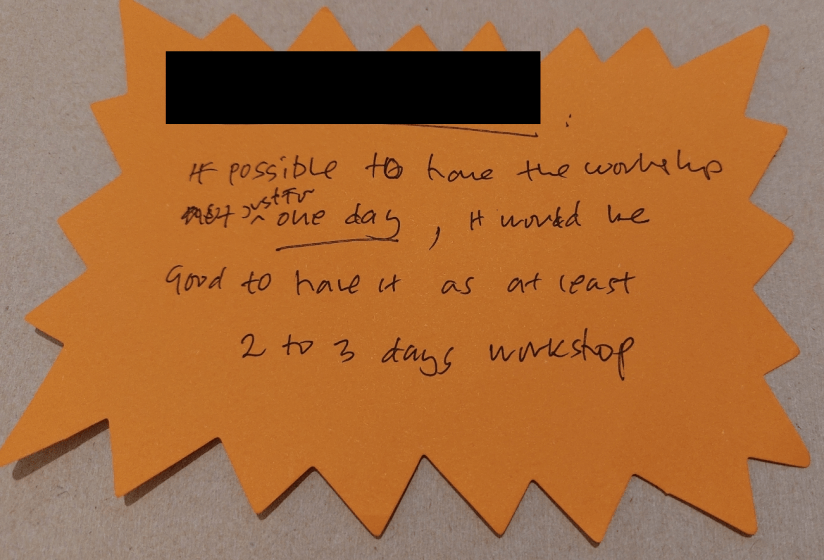 If possible to have the workshop
not just for one day, it would be
Good to have it as at least
2 to 3 days workshop